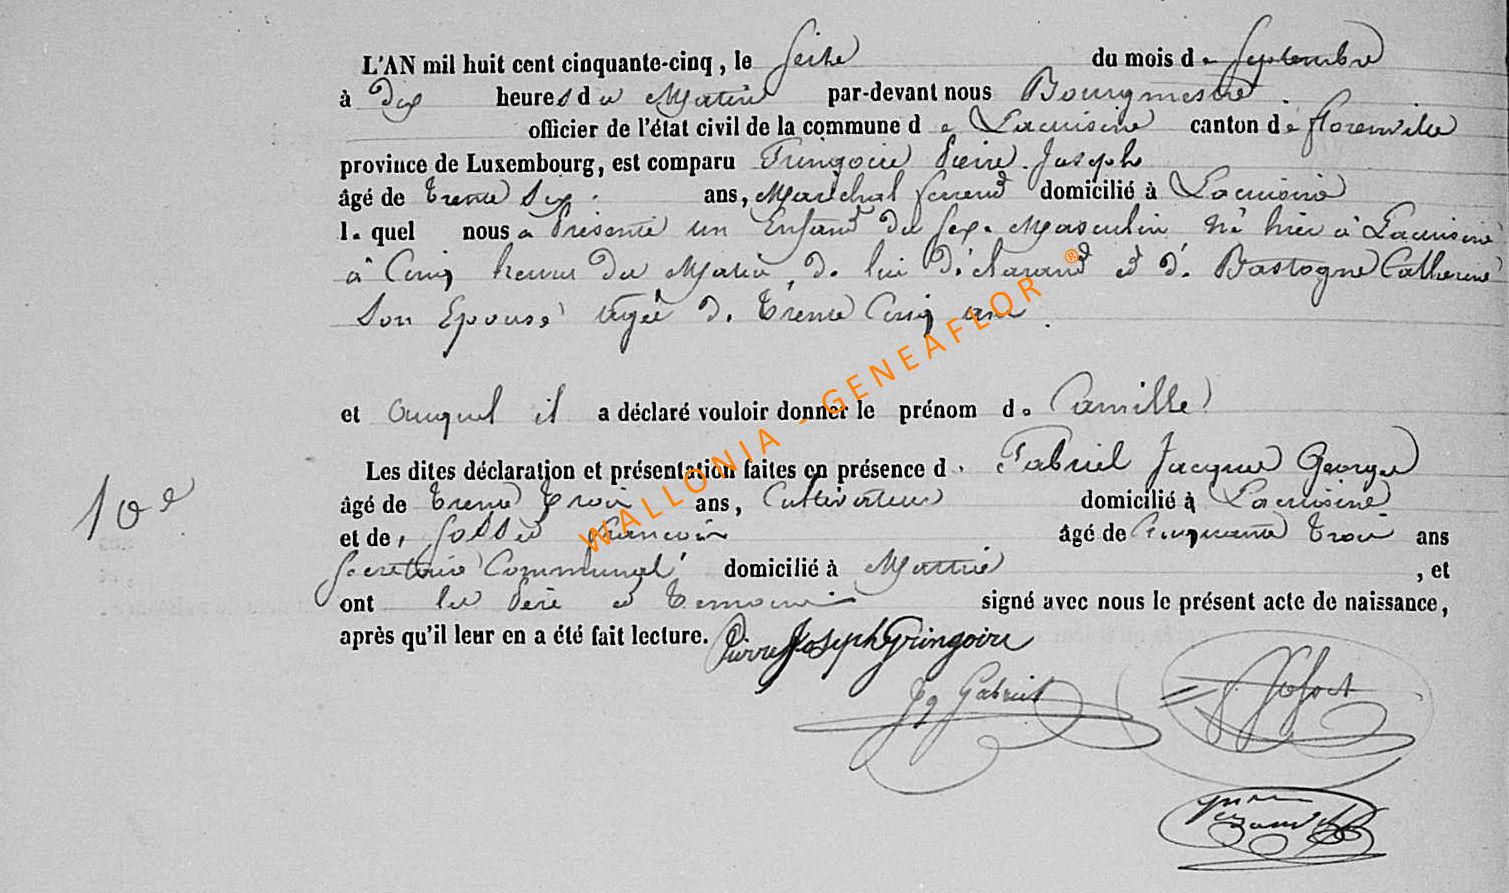 L'AN mil huit cent cinquante-cinq, le Seize du mois de Septembre
à Dix heures du Matin par-devant nous Bourgmestre
officier de l'état civil de la commune de Lacuisine canton de florenville
province de Luxembourg, est comparu Gringoire Pierre Joseph
âgé de trente Six ans, Maréchal ferrend domicilié à Lacuisine
lequel nous a Présenté un Enfand du Sexe Masculin Né hier à Lacuisine
à Cinq heures du Matin, de lui Déclarand et de Bastogne Catherine
Son Epouse agée de trente Cinq ans
et auquel il a déclaré vouloir donner le prénom de Camille
Les dites déclaration et présentation faites en présence de Gabriel Jacque George
10e
âgé de trente trois ans, Cultivateur domicilié à Lacuisine
et de françois âgé de Cinquante trois ans
Secretaire Communal domicilié à Martué, et
ont les Père et temoins signé avec nous le présent acte de naissance,
après qu'il leur en a été fait lecture. Pierre Joseph Gringoire
Jq Gabriel
WALLONIA - GENEAFLOR ®